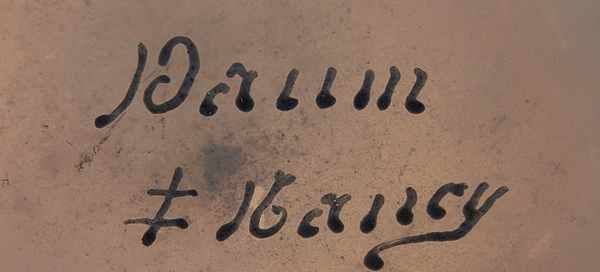 Daum
‡ Nancy